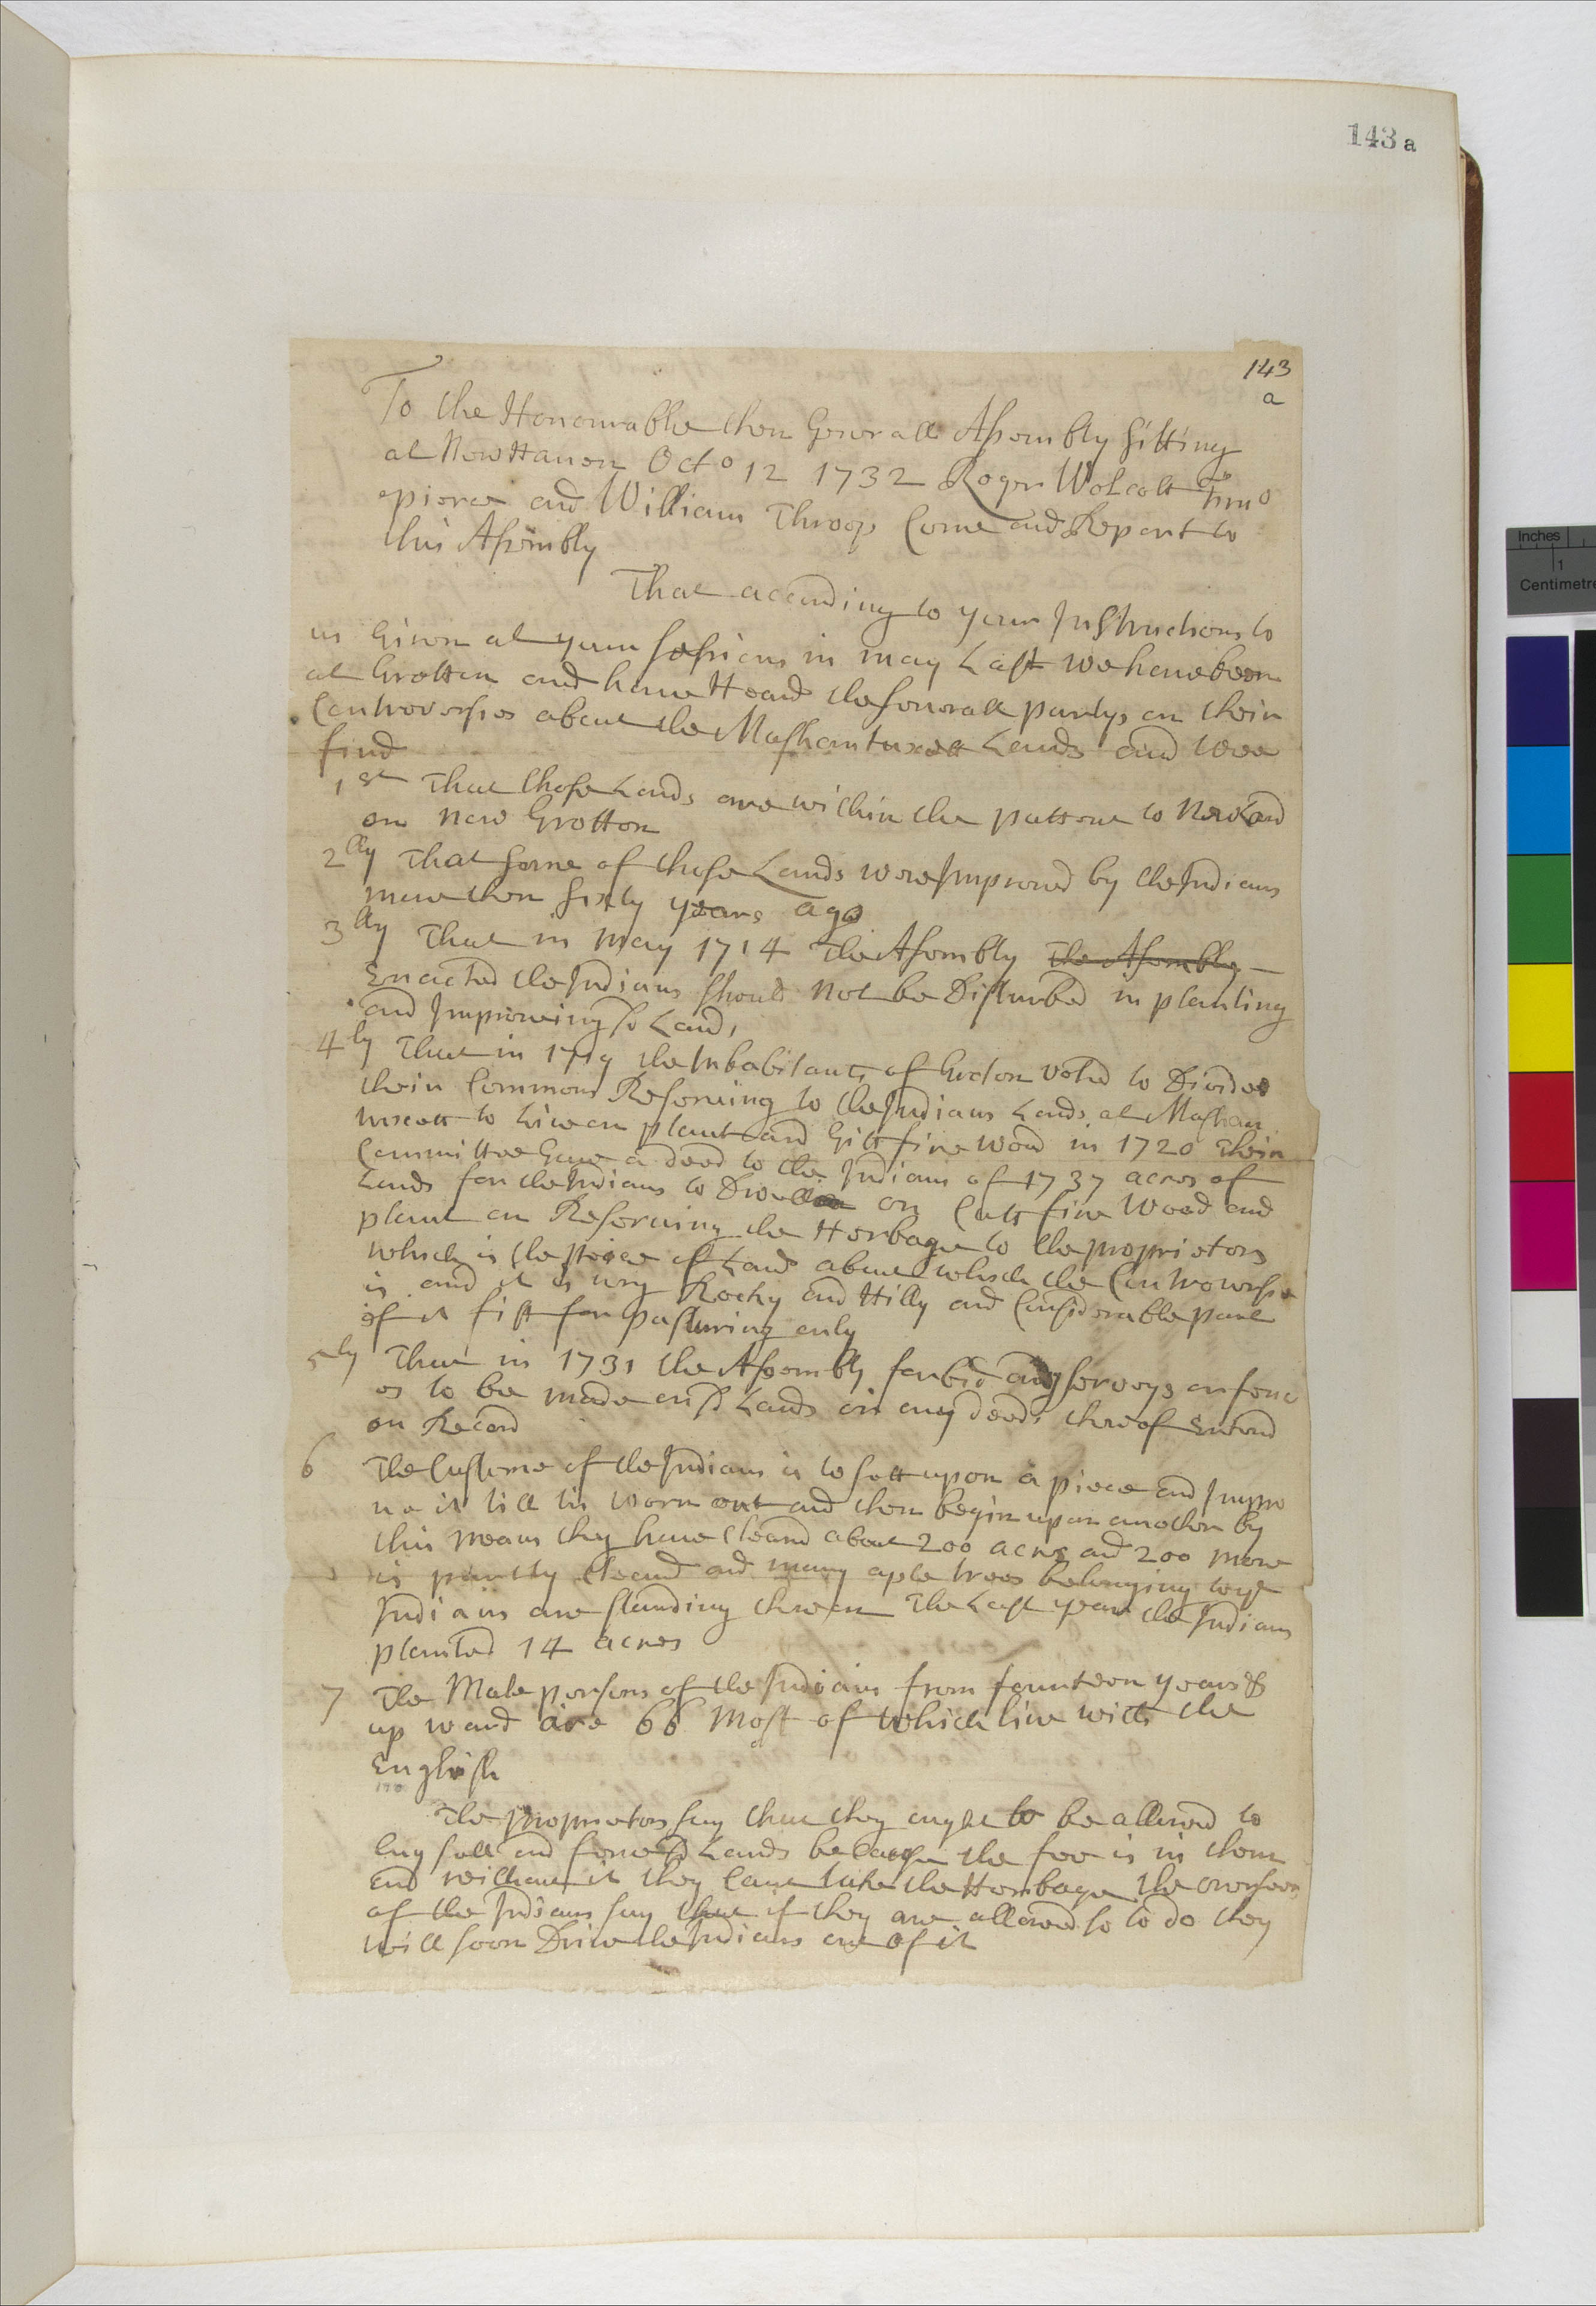 143 a
143
a
To the Honourable then Generall Assembly Sitting
at New Haven Octo 12 1732 Roger Wolcott Timo
pierce and William Throop Come and Report to
this Assembly
That according to your Instructions to
us Given at your sessions in may Last we have been
at Grotten and have Heard the severall partys on their
Controversies about the Mashantuxett Lands and wee
find
1st That those Lands are within the pattent to New Lond
on now Grotton
2lly That some of those Lands were Improved by the Indians
more then sixty years ago
3lly That in may 1714 The Assembly The Assembly
Enacted the Indians should not be Disturbed in planting
and Improveing sd Land,
4ly That in 1719 the Inhabitants of Groton voted to Divide
their Commons Reserving to the Indians Lands at Mashan
tuxett to Live on plant and Gitt fire wood in 1720 their
Committee Gave a deed to the Indians of 1737 acres of
Lands for the Indians to Dwell on Cutt fire Wood and
plant on Reserving the Herbage to the proprietors
which is the piece of Land about which the Controversie
is and it is very Rocky and Hilly and Considerable part
of it fitt for pasturing only
5ly That in 1731 the Assembly forbid any serveys or fenc
es to be made on sd Lands or any deeds thereof Entord
on Record
6 The Custome of the Indians is to sett upon a piece and Impro
ve it till tis worn out and then begin upon another by
this means they have Cleard about 200 acres and 200 more
is partly Cleard and many aple trees belonging to ye
Indians are standing thereon The Last year the Indians
planted 14 acres
7 The Male persons of the Indians from fourteen years &
up ward are 66 Most of which live with the
English
The proprietors say that they ought to be allowed to
Lay out and fence sd Lands because the fee is in them
and without it they Cant take the Herbage the overseers
of the Indians say that if they are allowed so to do they
will soon Drive the Indians out of it
Inches
1
Centimetre